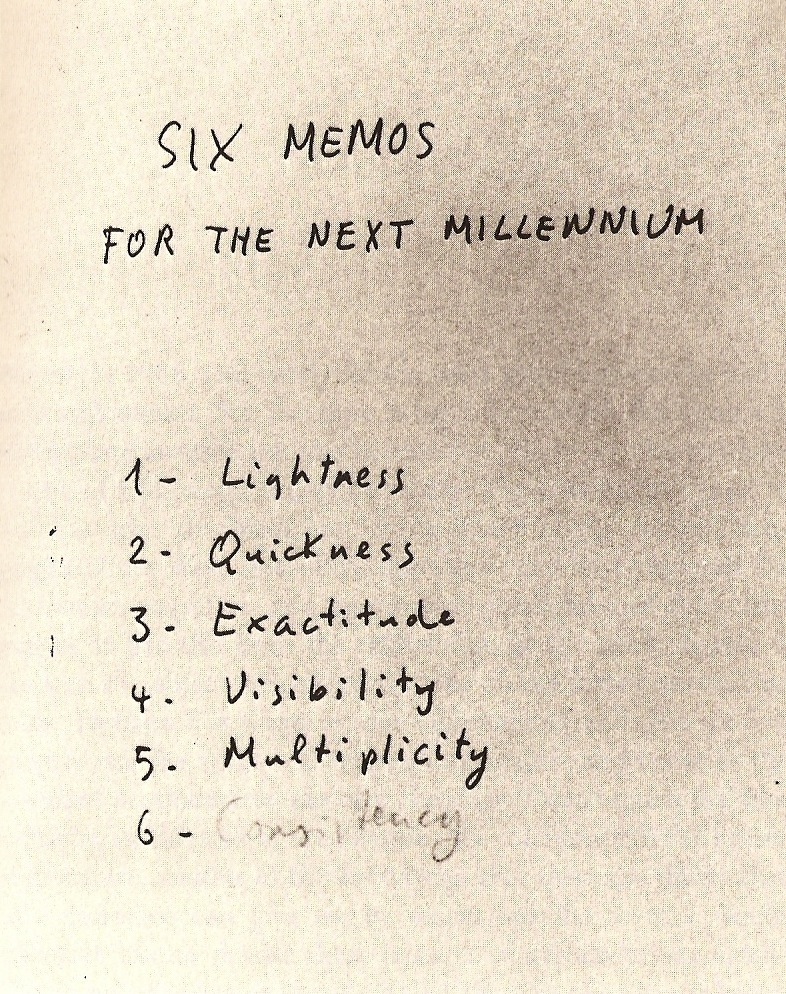 SIX MEMOS
FOR THE NEXT MILLENNIUM
1- Lightness
2- Quickness
3- Exactitude
4. Visibility
5. Multiplicity
6- Consistency